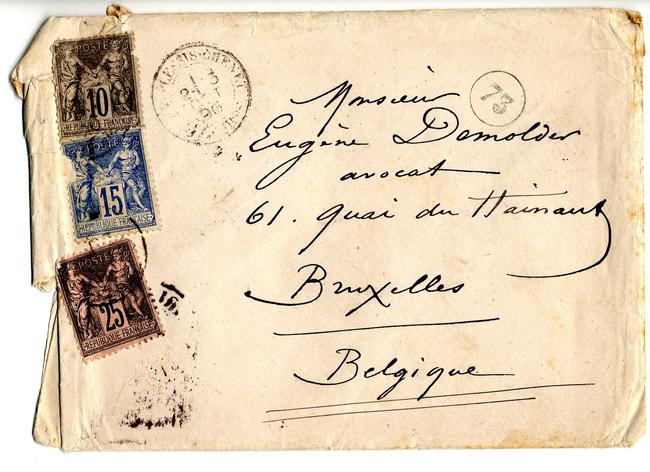 POSTE
10
REPUBLIQUE FRANÇAISE
POSTE
15
REPUBLIQUE FRANÇAISE
POSTE
25
REPUBLIQUE FRANÇAISE
73
Monsieur
Eugène Demolder
avocat
61. Quai du Hainaut
Bruxelles
Belgique